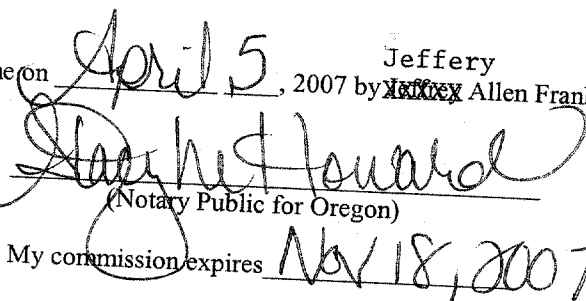 me on April 5, 2007 by Jeffery Allen Frank
Stacy M Howard
(Notary Public for Oregon)
My commission expires Nov 18, 2007